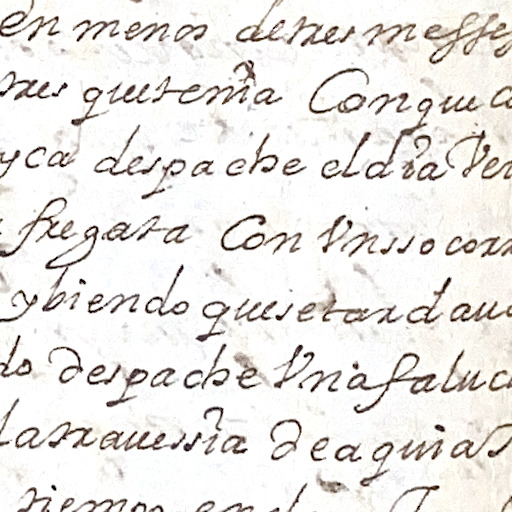 en menos de tres messes
tres que tenia Con que a
yca despache el dia Ve
fregata Con Vn sso corr
y biendo que se tardaua
do despache Vna faluc
la trauessia de aqui a
tiempo en